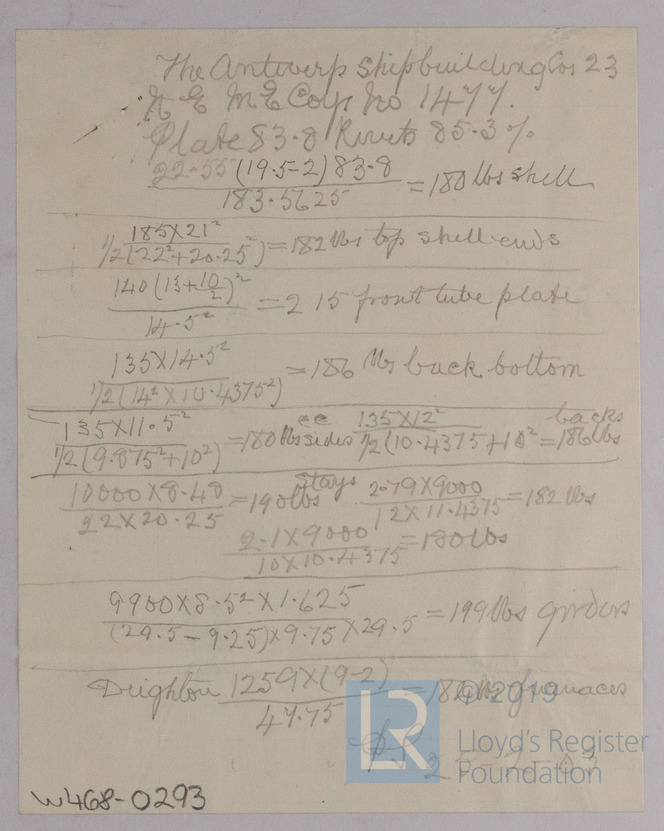 The Antwerp Shipbuilding Cos 23
N E M E Coys No 1477.
Plate 83.8 Rivets 85.3 %
22.55 (19.5-2) 83.8 / 183.5625 = 180 lbs shell
185X21² / ½(22²+20.25²) = 182 lbs top shell ends
140(13+10/2)² / 14.5² = 215 front tube plate
135X14.5² / ½(14²X10.4375²) = 186 lbs back bottom
135X11.5² / ½(9.875²+10²) = 180 lbs sides cc 135X12² / ½(10.4375+10² = 186 lbs backs
10000X8.48 / 22X20.25 = 190 lbs stays 2.79X9000 / 12X11.4375 = 182 lbs
2.1X9000 / 10X10.4375 = 180 lbs
9900X8.5²X1.625 / (29.5-9.25)X9.75X29.5 = 199 lbs girders
Deighton 1259X(9-2) / 47.75 = lbs furnaces
© 2019
Lloyd's Register
Foundation
LR
W468-0293